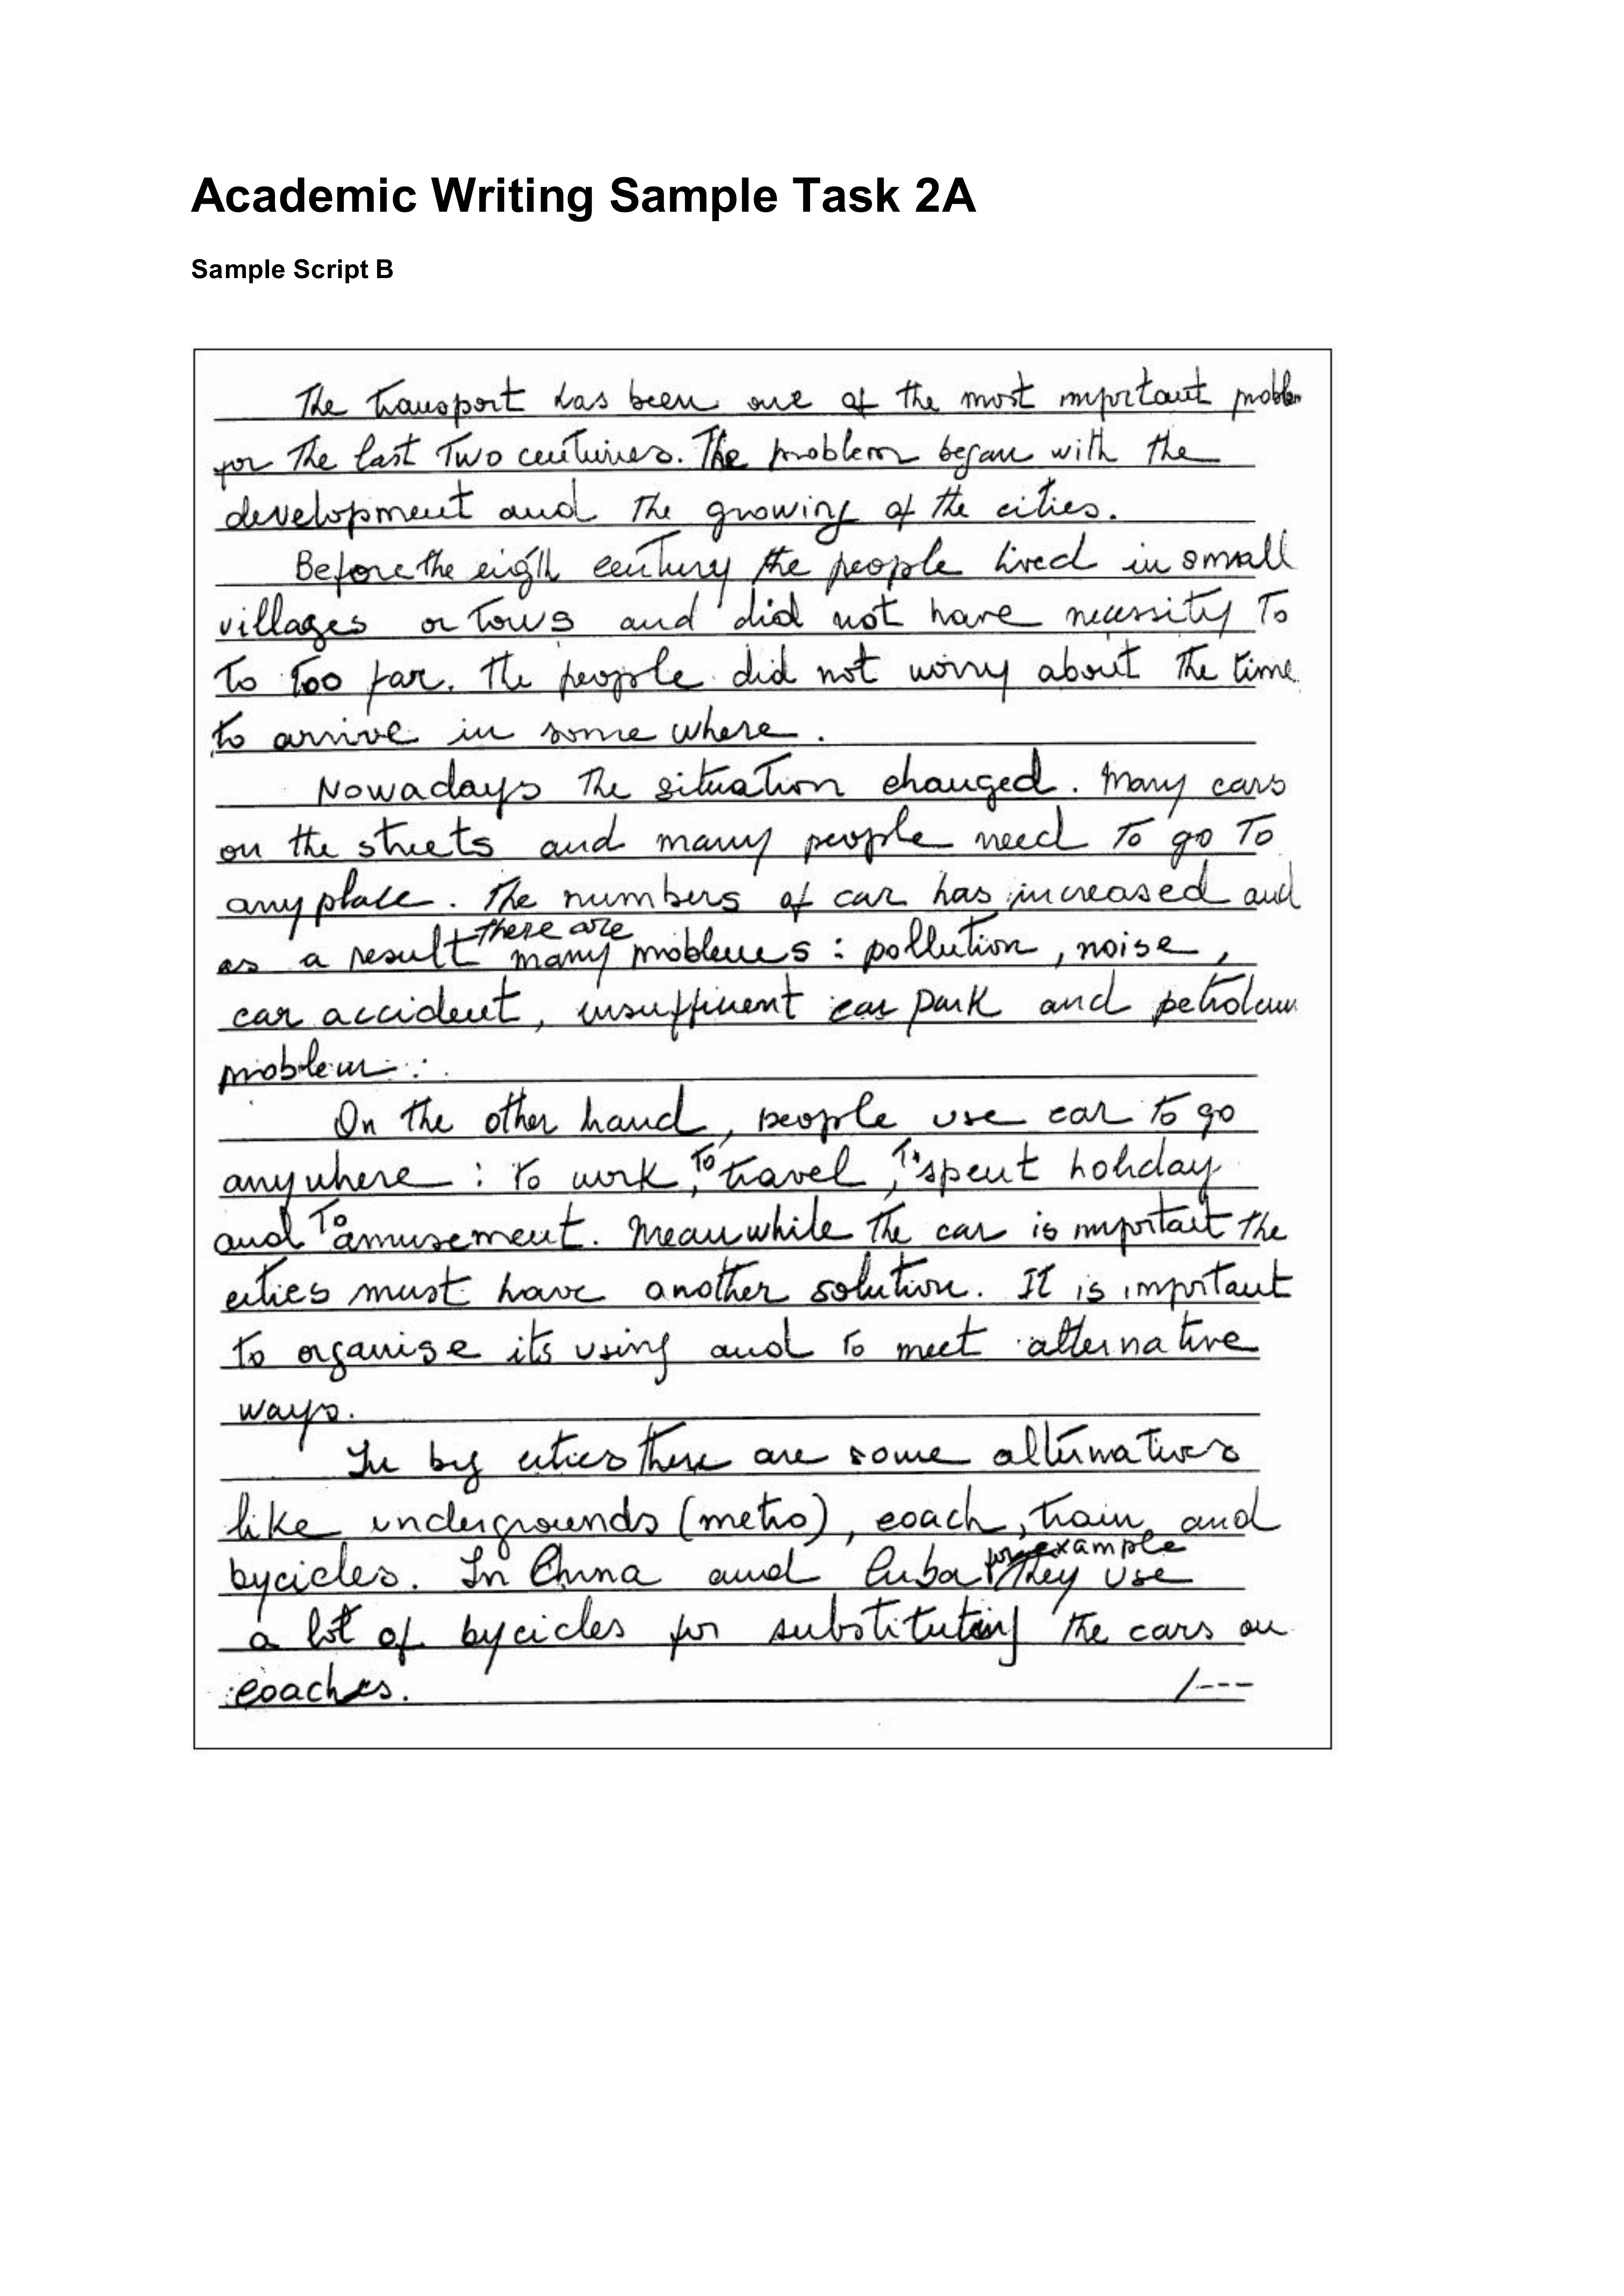 Academic Writing Sample Task 2A
Sample Script B
The transport has been one of the most important problem
for the last two centuries. The problem began with the
development and the growing of the cities.
Before the eigth century the people lived in small
villages or tows and did not have necessity to
to too far. The people did not worry about the time
to arrive in some where.
Nowadays the situation changed. Many cars
on the streets and many people need to go to
any place. The numbers of car has increased and
as a result there are many problems : pollution, noise,
car accident, insufficient car park and petroleum
problem.
On the other hand, people use car to go
anywhere : to work, to travel, to spent holiday
and to amusement. Meanwhile the car is important the
cities must have another solution. It is important
to organise its using and to meet alternative
ways.
In big cities there are some alternatives
like undergrounds (metro), coach, train and
bycicles. In China and Cuba for example they use
a lot of bycicles for substituting the cars or
coaches. /---